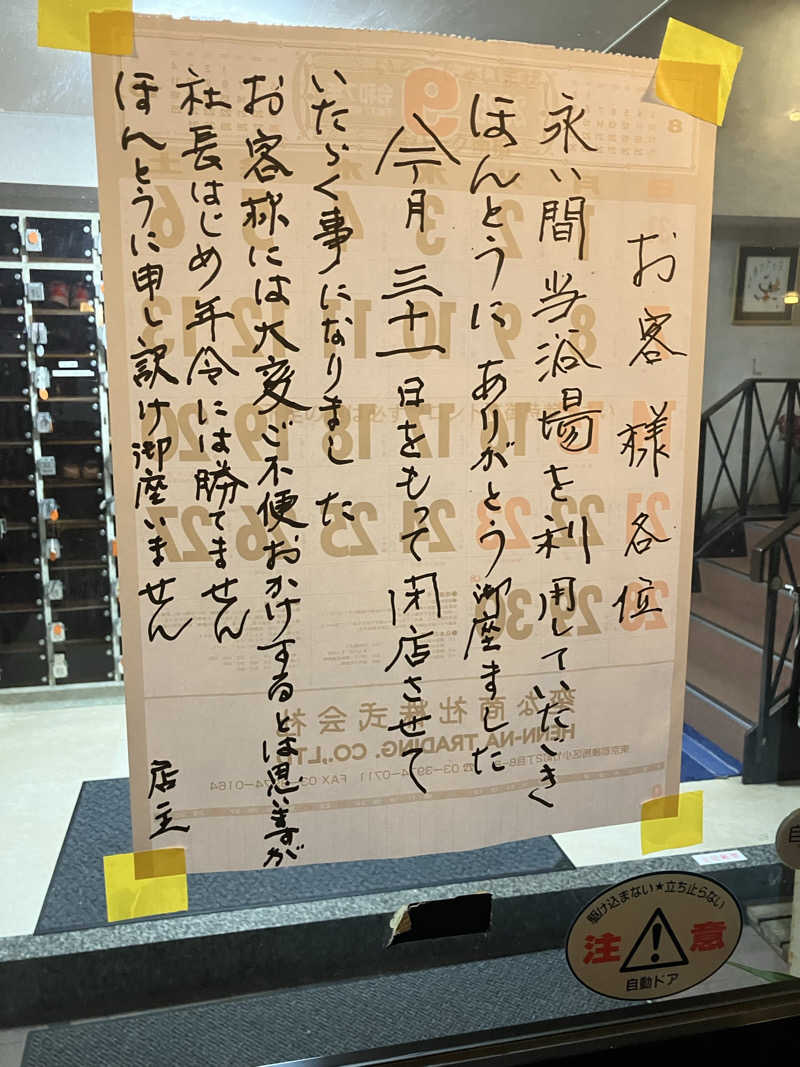 お客様各位
永い間当浴場を利用していただきく
ほんとうにありがとう御座ました
今月三十一日をもって閉店させて
いたゞく事になりました
お客様には大変ご不便おかけするとは思いますが
社長はじめ年令には勝てません
ほんとうに申し訳け御座いません
店主
駆け込まない★立ち止らない
注意
自動ドア
変な商社株式会社
HENN-NA TRADING. CO.,LTD